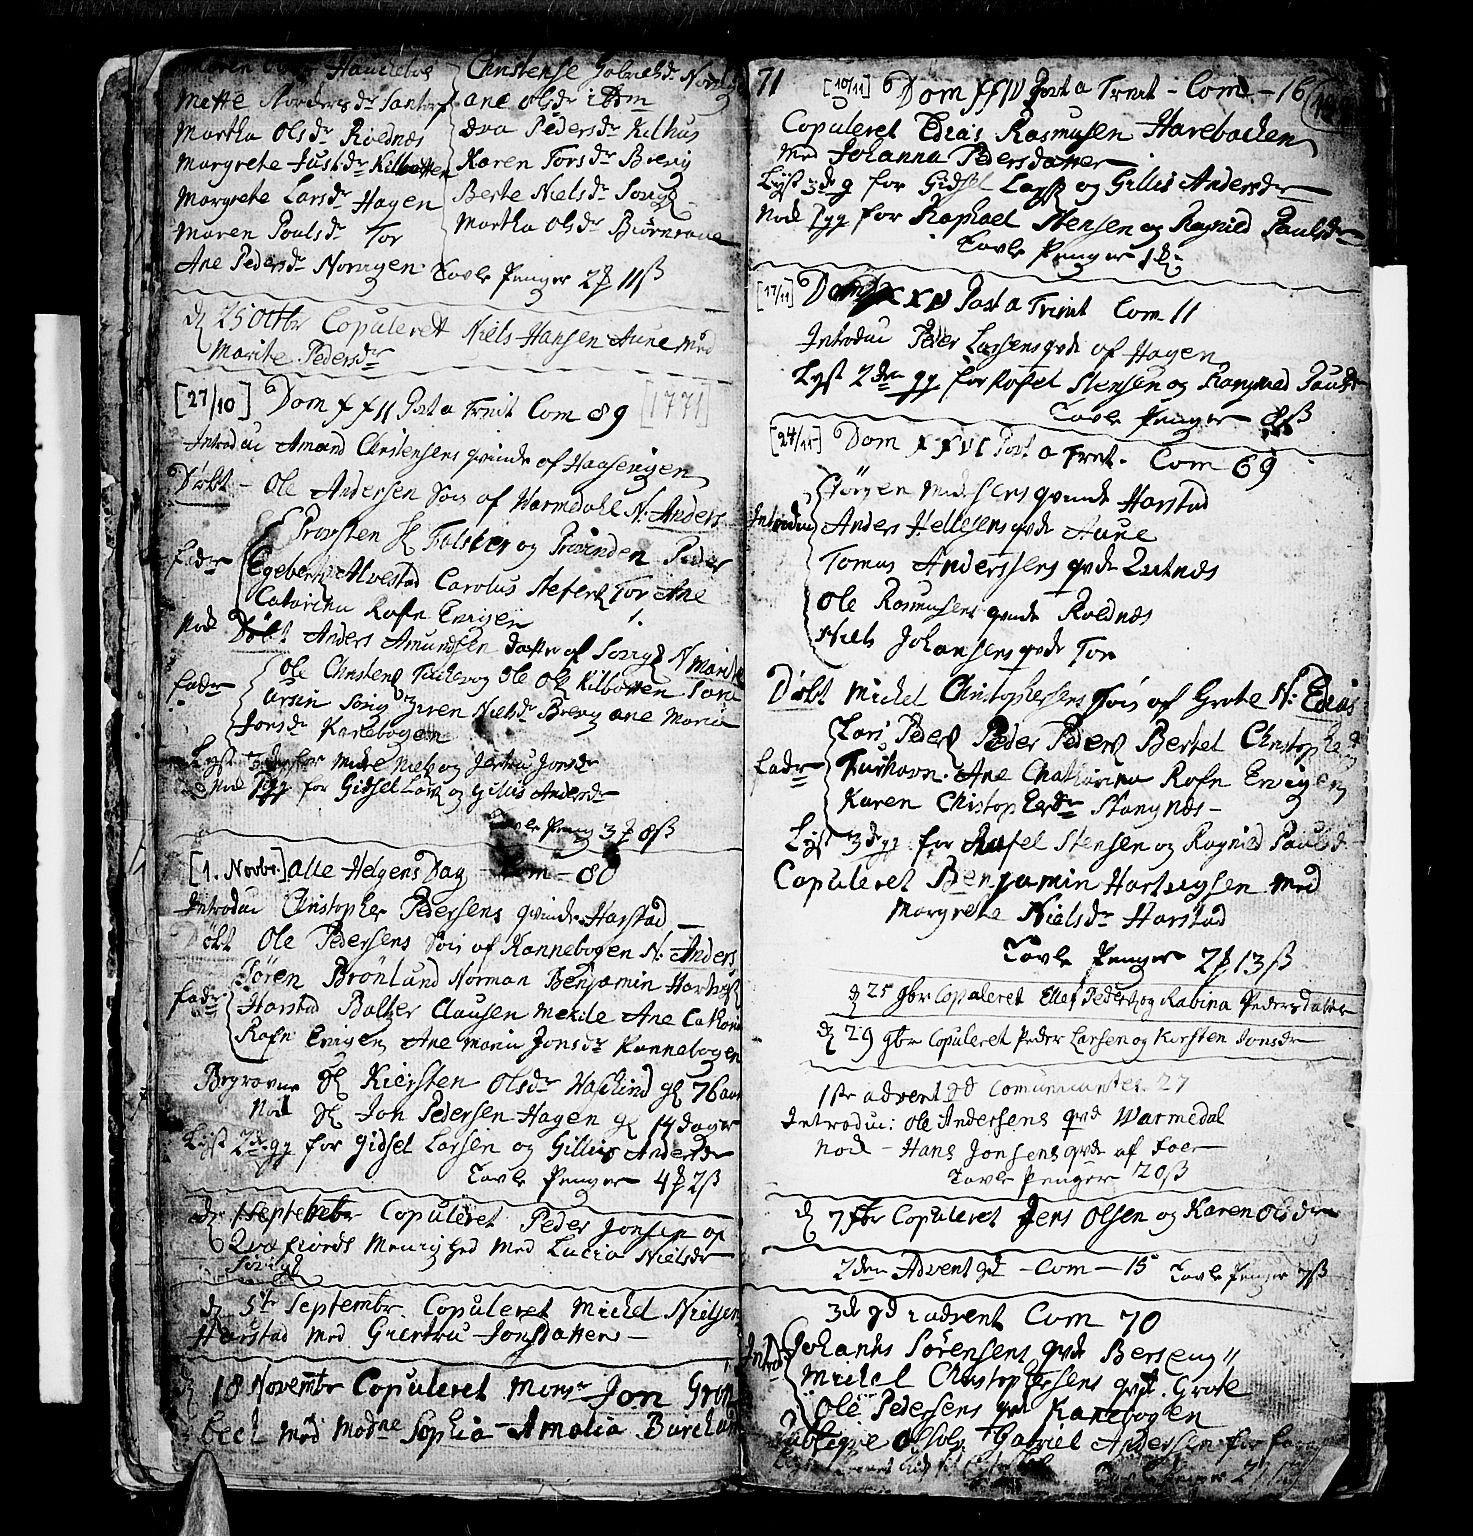 Hauckebøe
Mette Nordersdr Santorf
Martha Olsdr Roldnæs
Margrete Justdr Kilbotten
Margrete Larsdr Hagen
Maren Poulsdr Tor
Ane Pedersdr Norvigen
Christense Gabrielsdr Norvig
ane olsdr ibdm
Eva Pedersdr Kilhus
Karen Torsdr Brevig
Berte Nielsdr Sørvig
Martha Olsdr Biørnraae
Tavle Penger 2 11 ß
d 25 Octbr Copuleret Niels Hansen Aune med
Marite Pedersdr
[27/10] Dom XXII Post a Trinit Com 89 [1771]
Introduc Amand Christensens qvinde af Haasevigen
Døbt - Ole Andersen Søn af Warmedahl N. Anders
Fadr Provsten H Falster og Provinden Peder
Egebersen Alvestad Carolus Tor Ane
Catarina Rofn Ervigen
Nok Døbt Anders Amundsen datter af Sørvig N Marite
Fadr Ole Christens og Ole Ols Kilbotten
Sørvig Ziren Nielsdr Brevig ane Maria
Jonsdr Kanebogen
Lyst 3de for Michel Niels og Jertru Jonsdr
Nok for Gidsel Lars og Gillis Andersdr
Tavle Peng 3 8 ß
[1. Novbr.] alle Helgens Dag Com - 80
Introduc Christopher Pedersens qvinde Harstad
Døbt Ole Pedersens Søn af Kannebogen N. Anders
Søren Brønlund Norman Benjamin Hartvigs
Fadr Harstad Baltzer Clausen Mekile Ane Catharina
Rofn Ervigen Ane Maria Jonsdr Kannebogen
Begravne Kiersten Olsdr 76 aar
Nok Jon Pedersen Hagen 14 dager
Lyst 2de gg for Gidsel Larsen og Gillis Andersdr
Tavle Penger 4 2 ß
d 1 Septebr Copuleret Peder Jonsen af
Qvæfiords Menighed med Lucia Nielsdr
Sørvig
d 5te Septembr Copuleret Michel Nielsen
Harstad med Giertru Jonsdatter
d 18 Novembr Copuleret Monsr Jon Grøn
bech med Madme Sophia Amalia Burchard
71 [10/11] Dom XXIV Post a Trinit - Com - 16
Copuleret Edias Rasmusen Harebacken
Med Johanna Pedersdatter
Lyst 3de g for Gidsel Lars og Gillis Andersdr
Nok for Raphael Stensen og Ragnild Paulsdr
Tavle Penger
[17/11] Dom XXV Post a Trinit Com 11
Introduc Peder Larsens qvde af Hagen
Lyst 2den gg for Rafel Stensen og Rangnild Paulsdr
Tavle Penger 8 ß
[24/11] Dom XXVI Post a Trnt. Com 69
Introduc Jørgen Michelsens qvinde Harstad
Anders Hellesens qvde Aune
Tomas Anderssens qvde
Ole Rasmusens qvinde Roldnæs
Niels Johansens qvde Tor
Døbt Michel Christophersens Søn af Grote N: Edias
Lars Peders Peder Peders Bertel Christophers
Fadr Ane Chatharina Rofn Ervigen
Karen Christopherdr Stangnæs -
Lyst 3de gg for Rafel Stensen og Ragnild Paulsd
Copuleret Benjamin Hartvigsen med
Margrete Nielsdr Harstad
Tavle Penger 2 13 ß
d 25 9br Copuleret Ellef Peders og Rabina Pedersdatter
d 29 9br Copuleret Peder Larsen og Kirsten Jonsdr
1ste advent Communicanter. 27
Introduc: Ole Andersens qvd Warmedal
nok - Hans Jonsens qvde af Foer
Tavle Penger 20 ß
d 7 Xbr Copuleret Jens Olsen og Karen Olsdr
2den Advent - Com - 15 Tavle Penger 7 ß
3de i advent Com 70
Introd Johanes Sørensens qvde Berseng
Michel Christophersens qvd. Grote
Ole Pedersens qvd Kanebogen
Publiqve Absolv. Gabriel Andersen for